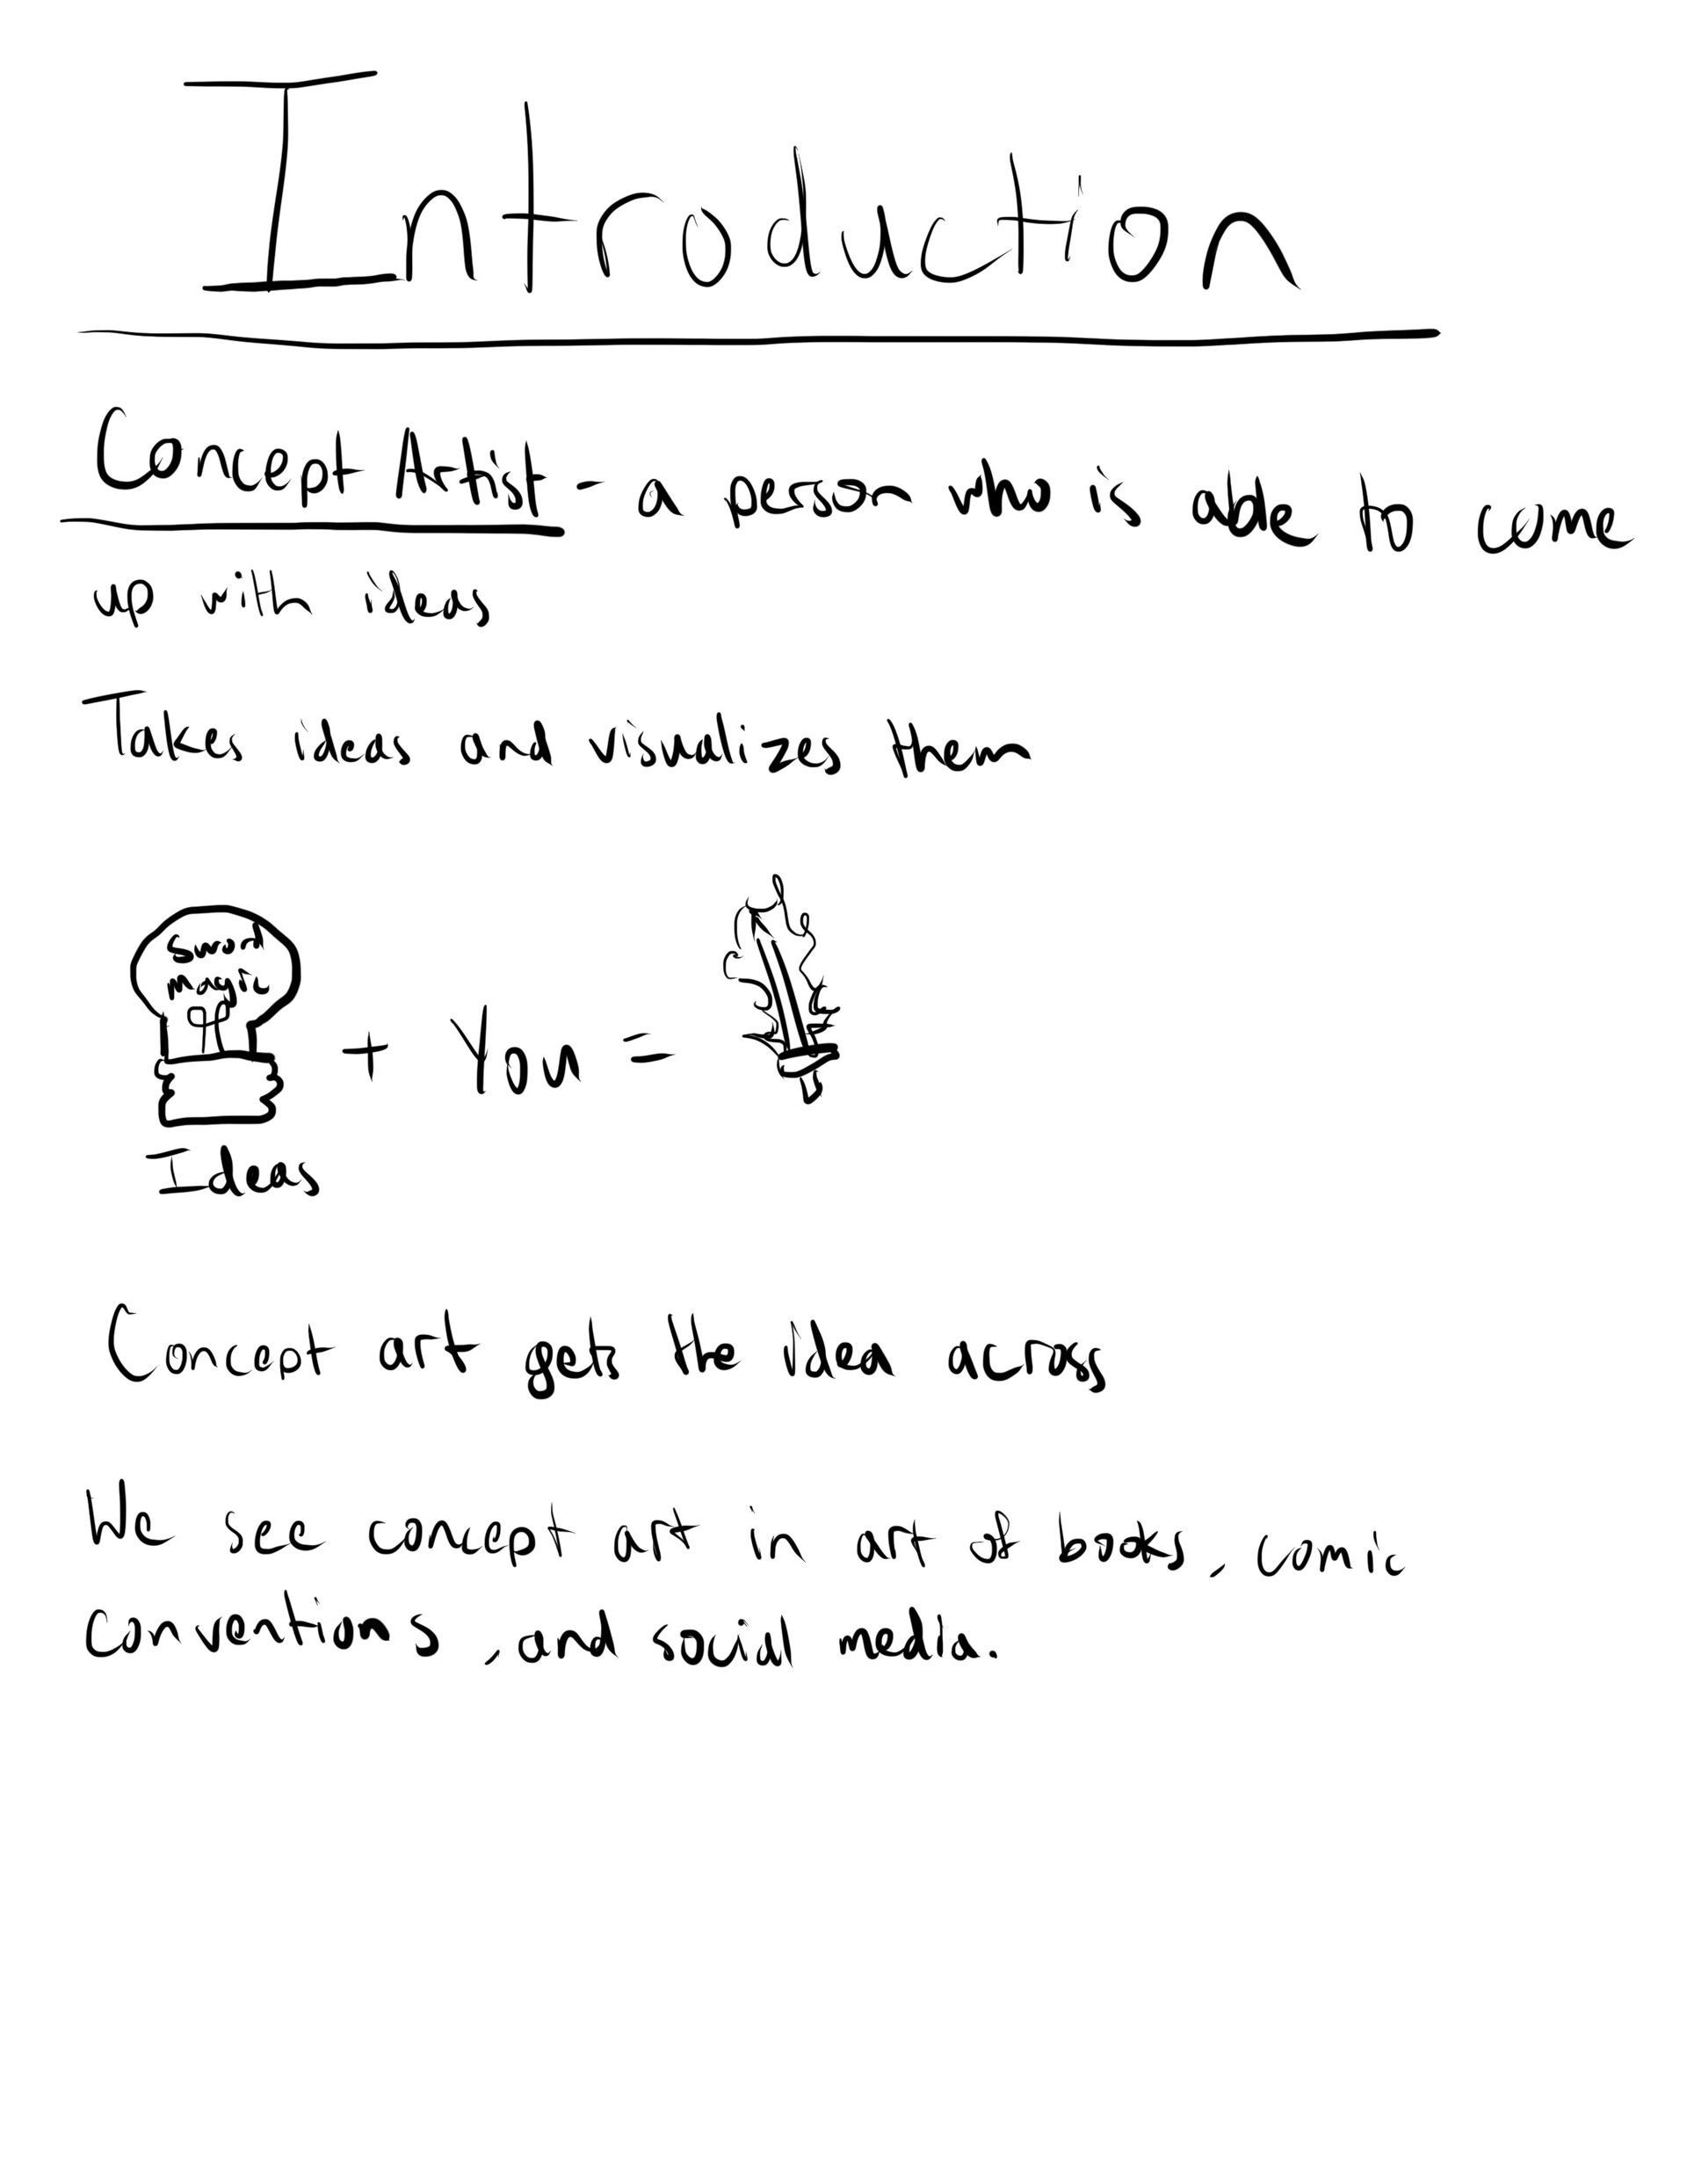 Introduction
Concept Artist - a person who is able to come
up with ideas
Takes ideas and visualizes them
Sword
Magic
+ You =
Ideas
Concept art gets the idea across
We see concept art in art of books, comic
conventions, and social media.